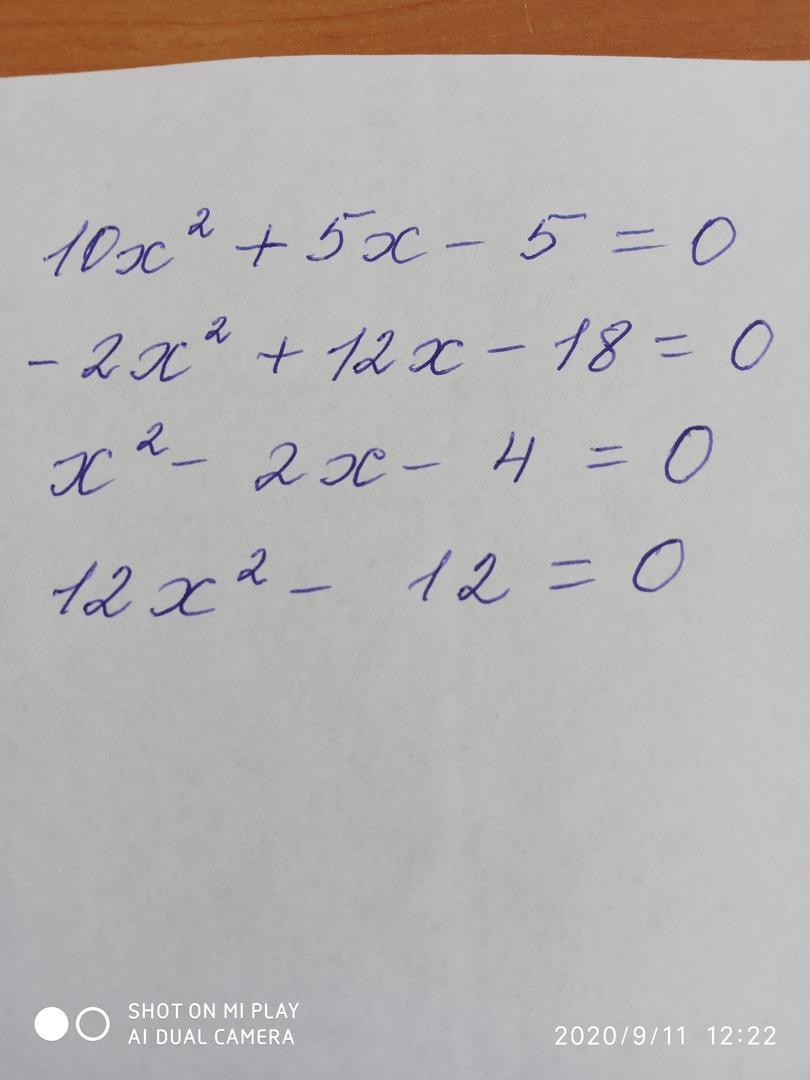 10x² + 5x - 5 = 0
- 2x² + 12x - 18 = 0
x² - 2x - 4 = 0
12x² - 12 = 0
SHOT ON MI PLAY
AI DUAL CAMERA
2020/9/11 12:22